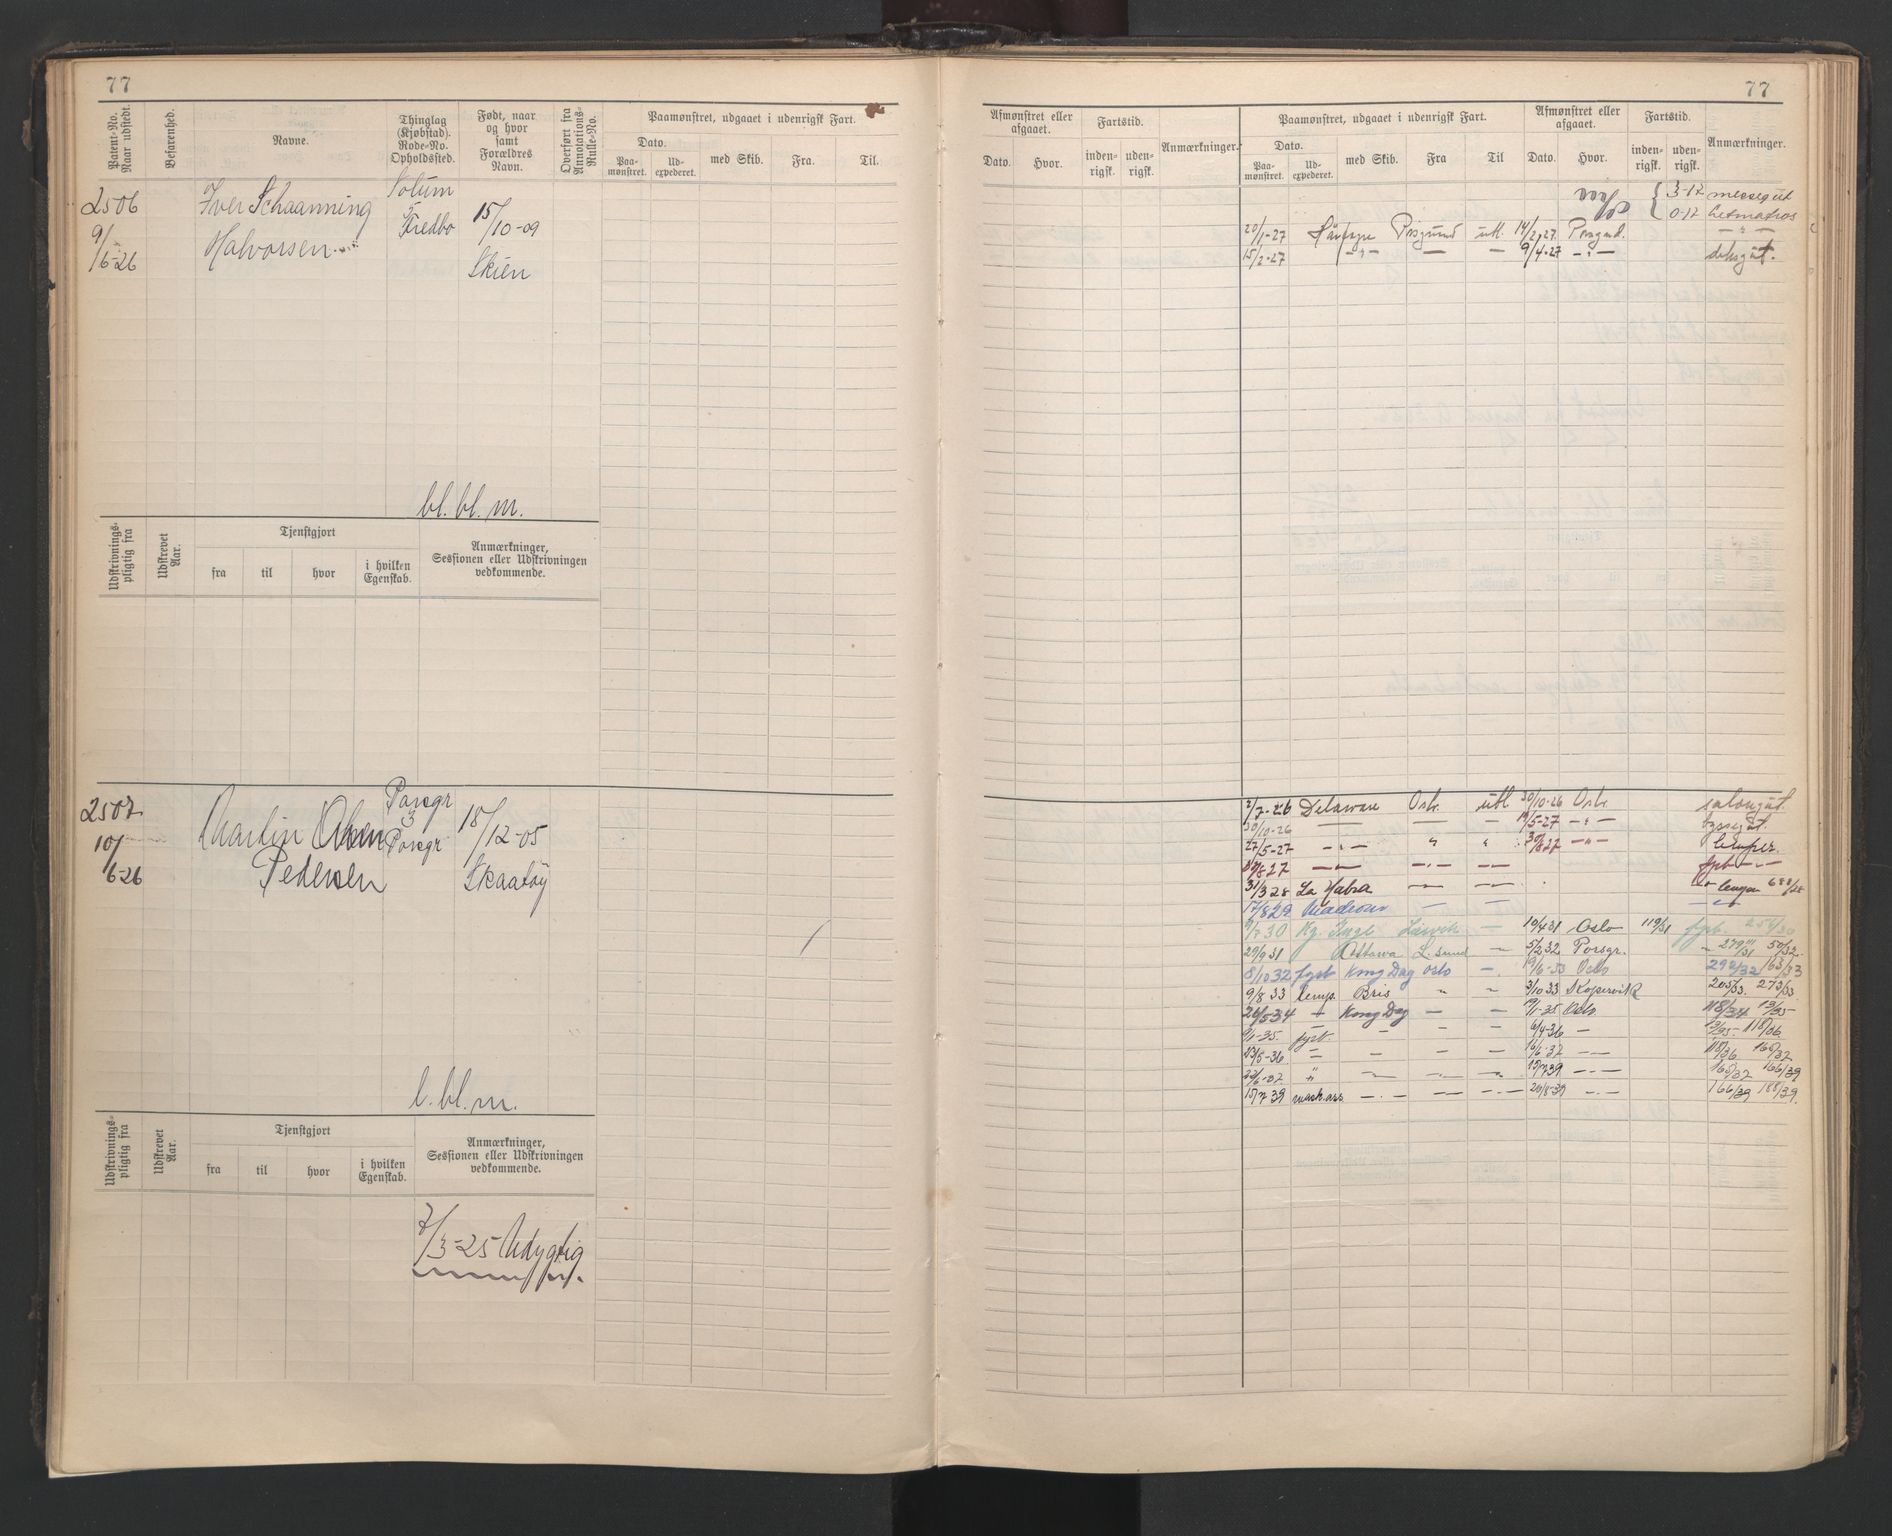 77
Patent-No. Naar udstedt.
Befarenhed.
Navne.
Thinglag (Kjøbstad). Rode-No. Opholdssted.
Født, naar og hvor samt Forældres Navn.
Overført fra Annotations-Rulle-No.
Paamønstret, udgaaet i udenrigsk Fart.
Dato.
Paa-mønstret.
Ud-expederet.
med Skib.
Fra.
Til.
2506
9/6-26
Iver Schaanning
Halvorsen
Solum
5
15/10-09
Skien
bl. bl. m.
Udskrivnings-pligtig fra
Udskrevet Aar.
Tjenstgjort
fra
til
hvor
i hvilken Egenskab.
Anmærkninger, Sessionen eller Udskrivningen vedkommende.
2507
10/6-26
Martin Olsen
Pedersen
Porsgr
3
Porsgr
18/12-05
Skaatøy
b. bl. m.
Udskrivnings-pligtig fra
Udskrevet Aar.
Tjenstgjort
fra
til
hvor
i hvilken Egenskab.
Anmærkninger, Sessionen eller Udskrivningen vedkommende.
7/3-25 Udygtig
77
Afmønstret eller afgaaet.
Dato.
Hvor.
Fartstid.
inden-rigsk.
uden-rigsk.
Anmærkninger.
Paamønstret, udgaaet i udenrigsk Fart.
Dato.
Paa-mønstret.
Ud-expederet.
med Skib.
Fra
Til
Afmønstret eller afgaaet.
Dato.
Hvor.
Fartstid.
inden-rigsk.
uden-rigsk.
Anmærkninger.
3-17 messegut
0-17 letmatros
20/1-27 Porsgrund utl. 14/2 27. Porsgrd. — " —
15/2-27 — " — — — 9/4-27 — " — dæksgut.
2/7-26 Delaware Oslo utl 30/10-26 Oslo salongut.
30/10-26 — — — 19/5-27 — " — byssegut.
27/5-27 — " — " " 30/8 27 — " — lemper.
30/8 27 — " — — " — — fyrb — " —
31/3 28 La Habra — — lemper 688/28
17/8 29 — — — " —
9/7 30 Kg. Inge Larvik — 19/4 31 Oslo 119/31 fyrb. 254/30
29/9 31 Ottawa L. sund — 5/2 32 Porsgr. 279/31 50/32
8/10 32 fyrb Kong Dag Oslo — 19/6-33 Oslo 292/32 163/33
9/8 33 lemp. Bris " " 3/10 33 Kopervik 205/33. 273/33
26/5 34 — Kong Dag — — 19/1-35 Oslo 118/34 19/35
9/1-35. fyrb. — — — 6/4-36 — 19/35 118/36
23/5-36 — — — — 16/6-37 — 118/36 165/37
22/6-37 " — — — 15/7 39 — 165/37 166/39
15/7 39 mask.ass — — — 24/8-39 — 166/39 188/39.